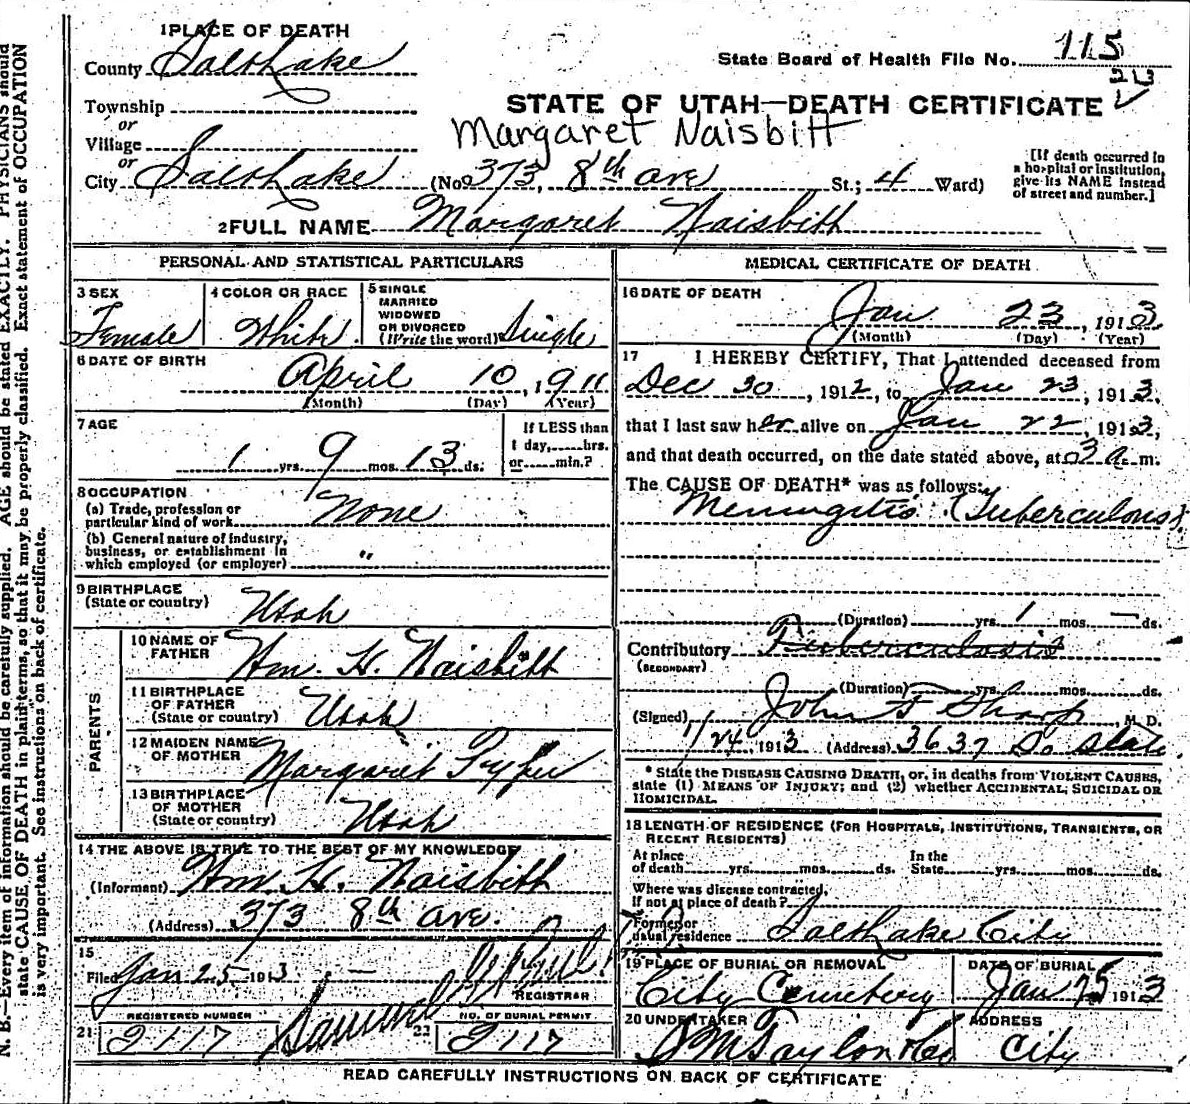 N. B.—Every item of information should be carefully supplied. AGE should be stated EXACTLY. PHYSICIANS should
state CAUSE OF DEATH in plain terms, so that it may be properly classified. Exact statement of OCCUPATION
is very important. See instructions on back of certificate.
1 PLACE OF DEATH
County Salt Lake
State Board of Health File No. 115
213
Township
or
Village
or
STATE OF UTAH—DEATH CERTIFICATE
Margaret Naisbitt
City Salt Lake (No. 373, 8th ave St.; 4 Ward)
[If death occurred in
a hospital or institution,
give its NAME instead
of street and number.]
2 FULL NAME Margaret Naisbitt
PERSONAL AND STATISTICAL PARTICULARS
3 SEX
Female
4 COLOR OR RACE
White
5 SINGLE
MARRIED
WIDOWED
OR DIVORCED
(Write the word) Single
6 DATE OF BIRTH
April 10, 1911
(Month) (Day) (Year)
7 AGE
1 yrs. 9 mos. 13 ds.
If LESS than
1 day, hrs.
or min.?
8 OCCUPATION
(a) Trade, profession or
particular kind of work None
(b) General nature of industry,
business, or establishment in
which employed (or employer) "
9 BIRTHPLACE
(State or country) Utah
PARENTS
10 NAME OF
FATHER Wm. H. Naisbitt
11 BIRTHPLACE
OF FATHER
(State or country) Utah
12 MAIDEN NAME
OF MOTHER Margaret
13 BIRTHPLACE
OF MOTHER
(State or country) Utah
14 THE ABOVE IS TRUE TO THE BEST OF MY KNOWLEDGE
(Informant) Wm. H. Naisbitt
(Address) 373 8th ave.
15
Filed Jan 25 1913
REGISTRAR
REGISTERED NUMBER
21 2117
NO. OF BURIAL PERMIT
22 2117
MEDICAL CERTIFICATE OF DEATH
16 DATE OF DEATH
Jan 23, 1913
(Month) (Day) (Year)
17 I HEREBY CERTIFY, That I attended deceased from
Dec 30, 1912, to Jan 23, 1913
that I last saw her alive on Jan 22, 1913,
and that death occurred, on the date stated above, at 3 a. m.
The CAUSE OF DEATH* was as follows:
Meningitis (Tuberculous)
(Duration) yrs. 1 mos. — ds.
Contributory Tuberculosis
(SECONDARY)
(Duration) yrs. mos. ds.
(Signed) John F Sharp, M. D.
1/24, 1913 (Address) 3637 So State
* State the DISEASE CAUSING DEATH, or, in deaths from VIOLENT CAUSES,
state (1) MEANS OF INJURY; and (2) whether ACCIDENTAL, SUICIDAL OR
HOMICIDAL.
18 LENGTH OF RESIDENCE (FOR HOSPITALS, INSTITUTIONS, TRANSIENTS, OR
RECENT RESIDENTS)
At place
of death yrs. mos. ds.
In the
State yrs. mos. ds.
Where was disease contracted,
if not at place of death?
Former or
usual residence Salt Lake City
19 PLACE OF BURIAL OR REMOVAL
City Cemetery
DATE OF BURIAL
Jan 25 1913
20 UNDERTAKER
S M Taylor &Co
ADDRESS
City
READ CAREFULLY INSTRUCTIONS ON BACK OF CERTIFICATE